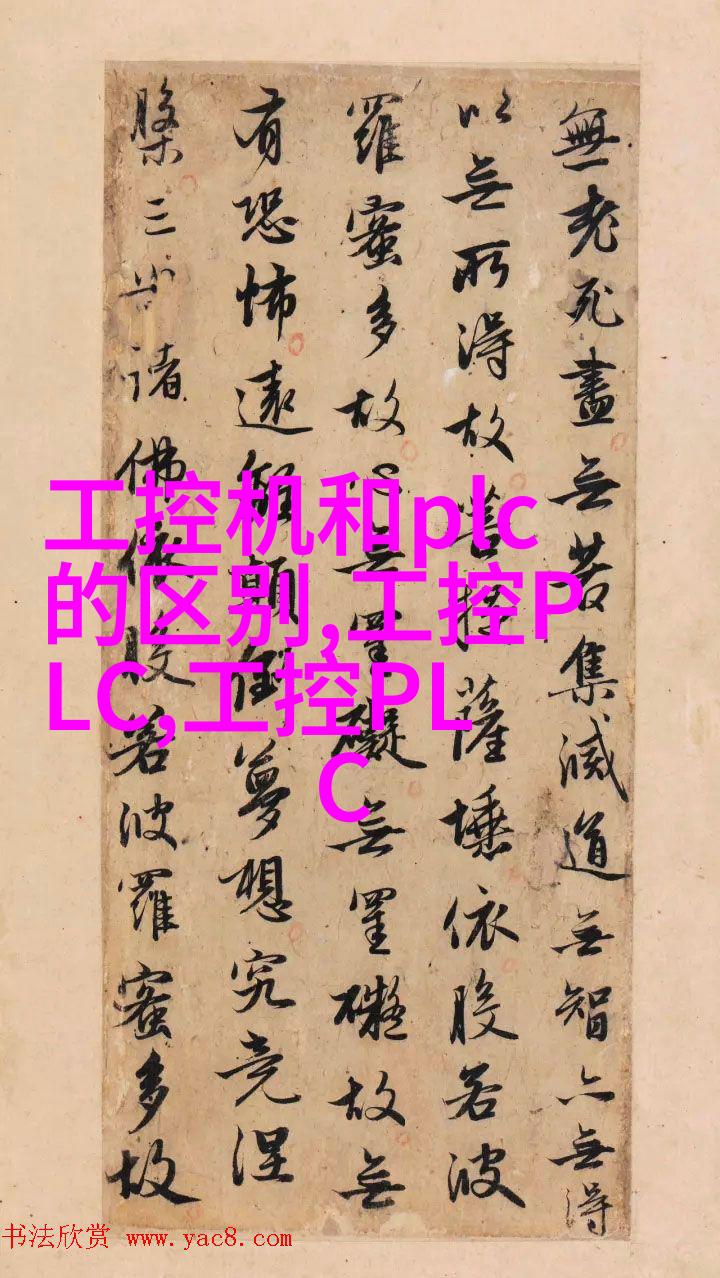 無老死盡无苦集滅道无智亦无得
以无所得故菩提薩埵依般若波
羅蜜多故心无罣礙无罣礙故无
有恐怖遠離顛倒夢想究竟涅
槃三世諸佛依般若波羅蜜多故
工控机和plc
的区别,工控P
LC,工控PL
C
书法欣赏 www.yac8.com